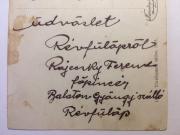 Üdvözlet
Révfülöpről
Rajeczky Ferenc
főpincér
Balaton Gyöngye szálló
Révfülöp